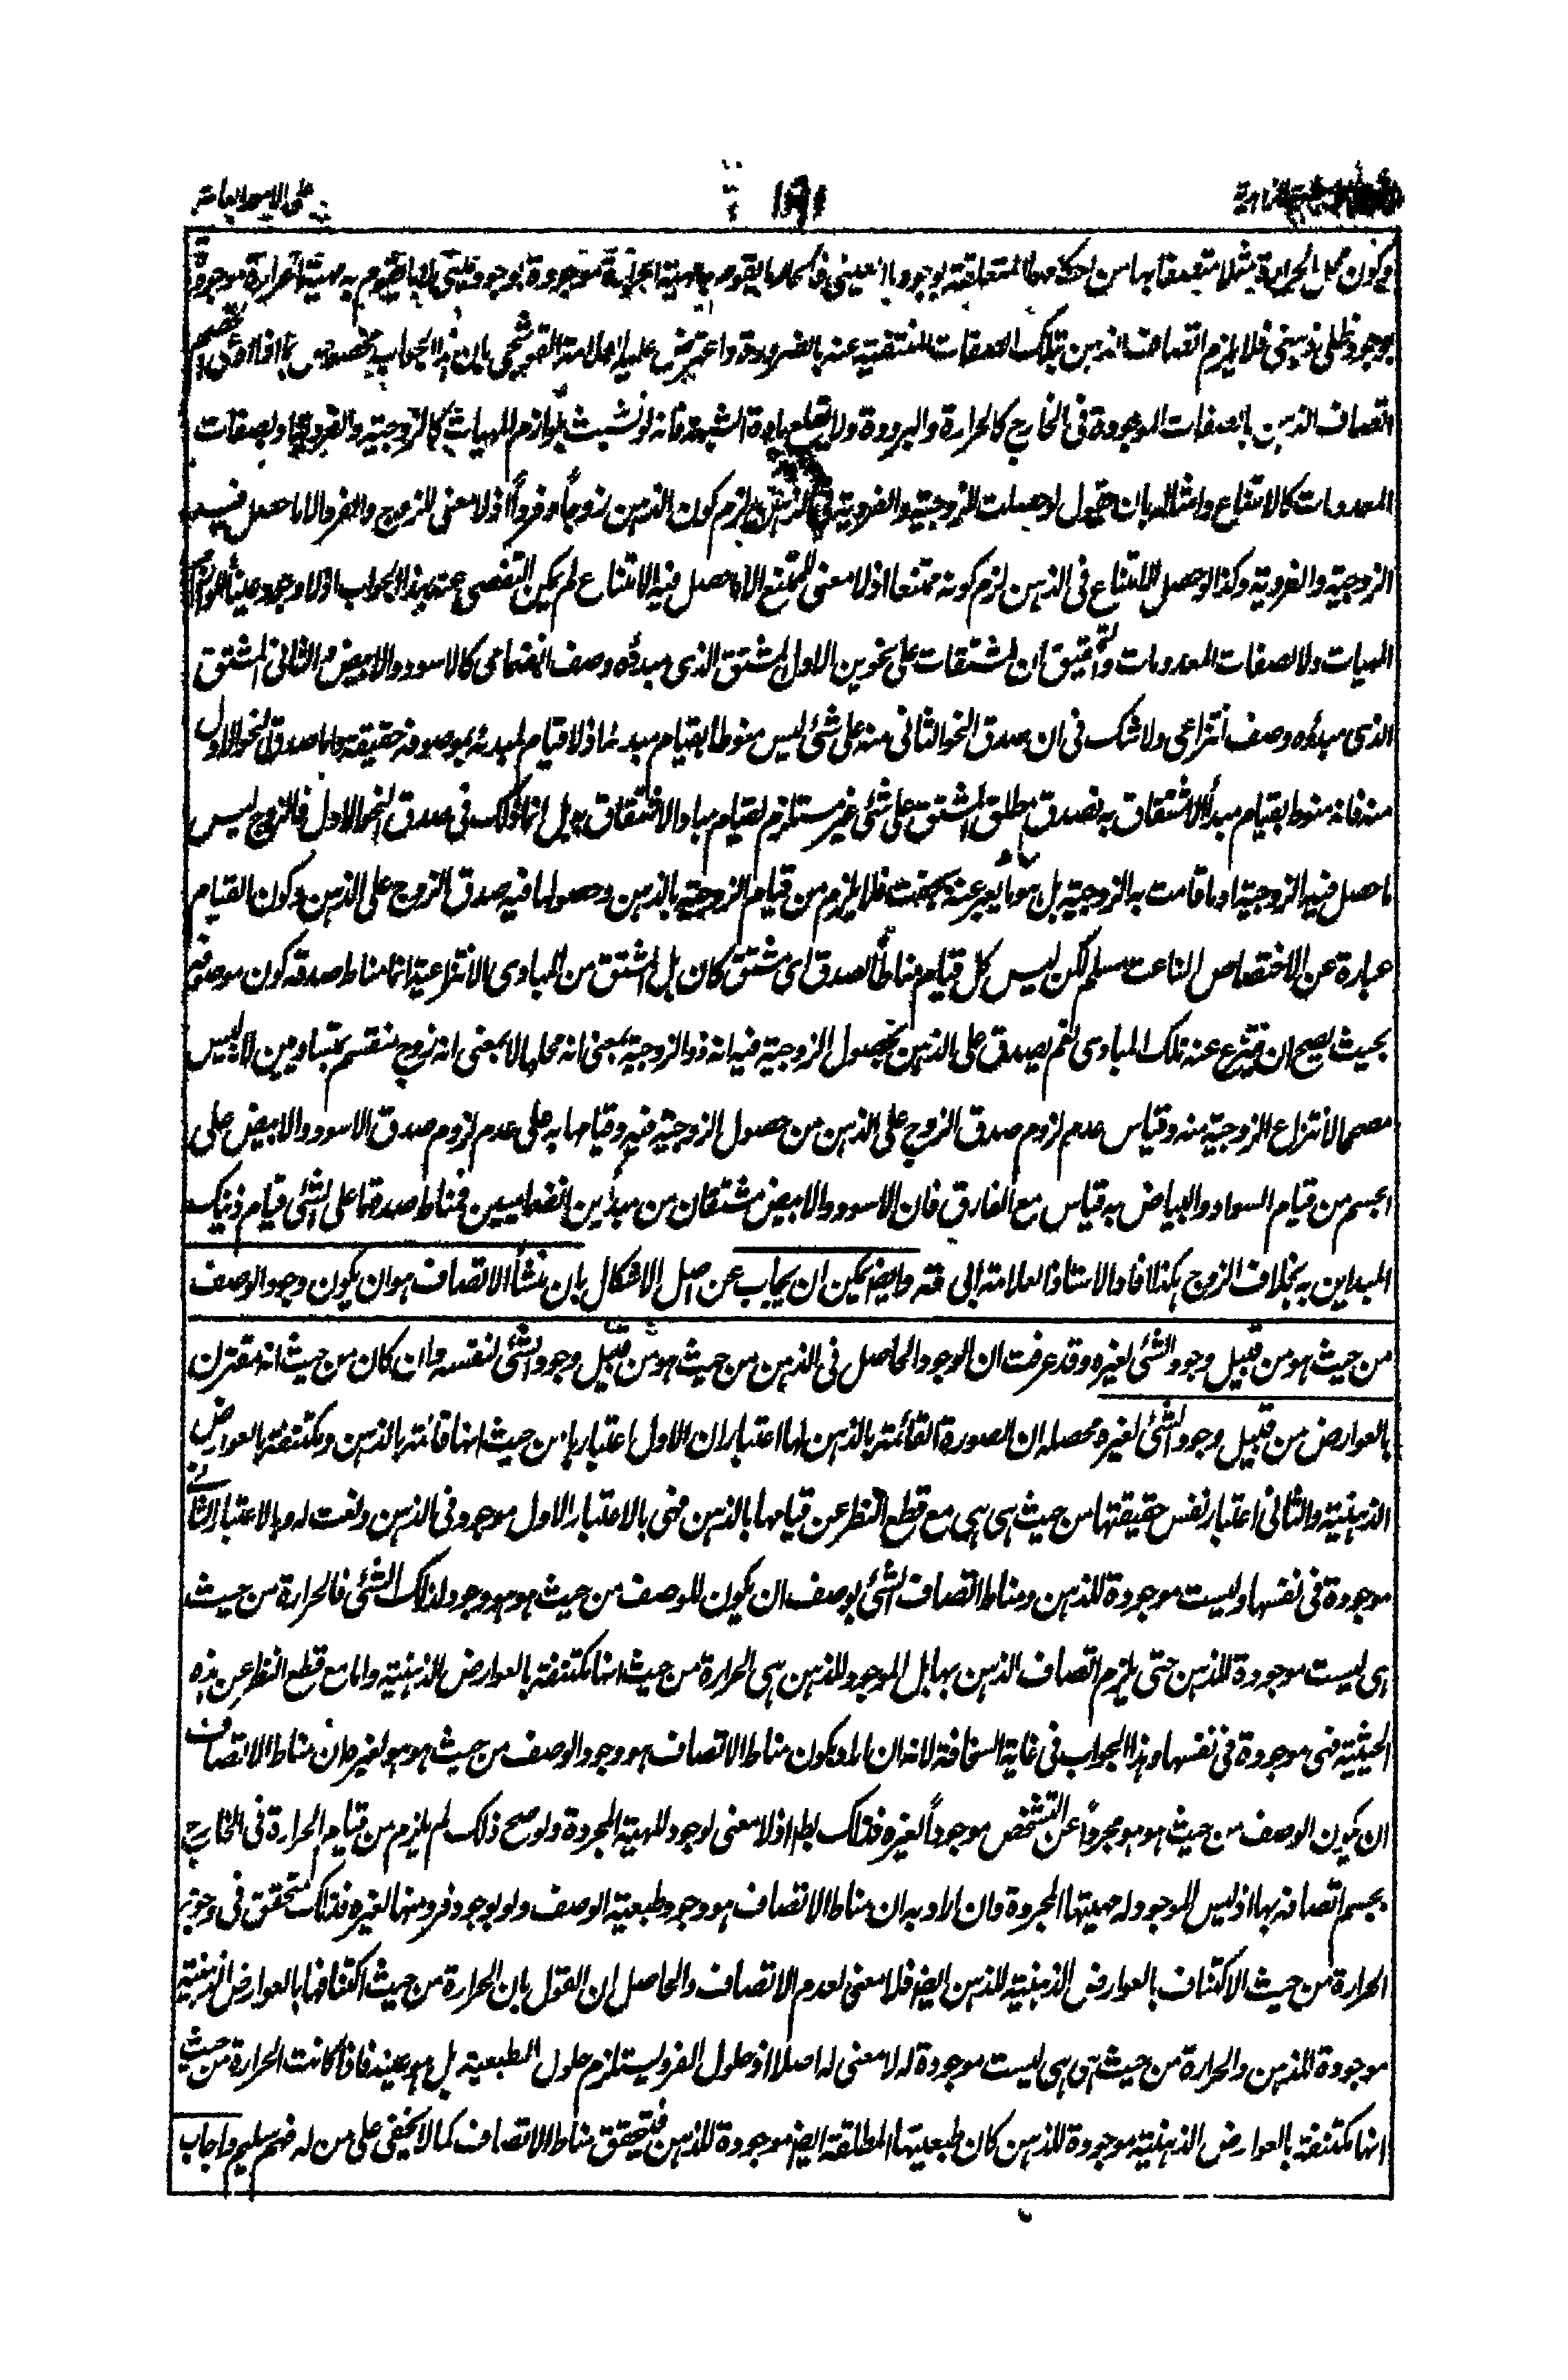 على الامور العامة
١٩١
وكون محل الحرارة مثلا متصفا بها من احكامها المتعلقة بوجودها العينى فالحار ما يقوم به مهية الحرارة موجودة بوجود عينى لا ما يقوم به مهية الحرارة موجودة
بوجود ظلى ذهنى فلا يلزم اتصاف الذهن بتلك الصفات المنتفية عنه بالضرورة واعترض عليه العلامة القوشجى بان هذا الجواب مخصوص بما اذا ادعى الخصم
اتصاف الذهن بالصفات الموجودة فى الخارج كالحرارة والبرودة ولا يقلع مادة الشبهة فانه لو تشبث بلوازم المهيات كالزوجية والفردية او بصفات
المعدومات كالامتناع وامثاله بان يقول لو حصلت الزوجية والفردية فى الذهن يلزم كون الذهن زوجاً وفرداً اذ لا معنى للزوج والفرد الا ما حصل فيه
الزوجية والفردية وكذا لو حصل الامتناع فى الذهن لزم كونه ممتنعا اذ لا معنى للممتنع الا ما حصل فيه الامتناع لم يمكن التفصى عنه بهذا الجواب اذ لا وجود عينيا للوازم
المهيات ولا لصفات المعدومات والتحقيق ان المشتقات على نحوين الاول المشتق الذى مبدؤه وصف انضمامى كالاسود والابيض والثانى المشتق
الذى مبدؤه وصف انتزاعى ولا شك فى ان صدق النحو الثانى منه على شئ ليس منوطا بقيام مبدئه اذ لا قيام لمبدئه بموصوفه حقيقة واما صدق النحو الاول
منه فانه منوط بقيام مبدأ الاشتقاق به فصدق مطلق المشتق على شئ غير مستلزم لقيام مبدا والاشتقاق به بل انما ذلك فى صدق النحو الاول فالزوج ليس
ما حصل فيه الزوجية او ما قامت به الزوجية بل هو ما يعبر عنه بجفت فلا يلزم من قيام الزوجية بالذهن وحصولها فيه صدق الزوج على الذهن وكون القيام
عبارة عن الاختصاص الناعت مسلم لكن ليس كل قيام مناطاً لصدق اى مشتق كان بل المشتق من المبادى الانتزاعية انما مناط صدقه كون موصوفه
بحيث يصح ان ينتزع عنه تلك المبادى نعم يصدق على الذهن بحصول الزوجية فيه انه ذو الزوجية بمعنى انه محلها لا بمعنى انه زوج منقسم بمتساويين لانه ليس
مصححا لانتزاع الزوجية منه وقياس عدم لزوم صدق الزوج على الذهن من حصول الزوجية فيه وقيامها به على عدم لزوم صدق الاسود والابيض على
الجسم من قيام السواد والبياض به قياس مع الفارق فان الاسود والابيض مشتقان من مبدأين انضماميين فمناط صدقهما على الشئ قيام ذينك
المبداين به بخلاف الزوج هكذا افاد الاستاذ العلامة ابى قده وايضا يمكن ان يجاب عن اصل الاشكال بان منشأ الاتصاف هو ان يكون وجود الوصف
من حيث هو من قبيل وجود الشئ لغيره وقد عرفت ان الوجود الحاصل فى الذهن من حيث هو من قبيل وجود الشئ لنفسه وان كان من حيث انه مقترن
بالعوارض من قبيل وجود الشئ لغيره محصله ان الصورة القائمة بالذهن لها اعتباران الاول اعتبارها من حيث انها قائمة بالذهن ومكتنفة بالعوارض
الذهنية والثانى اعتبار نفس حقيقتها من حيث هى هى مع قطع النظر عن قيامها بالذهن فهى بالاعتبار الاول موجود فى الذهن ونعت له وبالاعتبار الثانى
موجودة فى نفسها وليست موجودة للذهن ومناط اتصاف الشئ بوصف ان يكون للوصف من حيث هو هو وجود لذلك الشئ فالحرارة من حيث
هى ليست موجودة للذهن حتى يلزم اتصاف الذهن بها بل الموجود للذهن هى الحرارة من حيث انها مكتنفة بالعوارض الذهنية واما مع قطع النظر عن هذه
الحيثية فهى موجودة فى نفسها وهذا الجواب فى غاية السخافة لانه ان اراد بكون مناط الاتصاف هو وجود الوصف من حيث هو هو لغيره ان مناط الاتصاف
ان يكون الوصف من حيث هو هو مجرداً عن التشخص موجوداً لغيره فذلك بط اذ لا معنى لوجود المهية المجردة ولو صح ذلك لم يلزم من قيام الحرارة فى الخارج
بجسم اتصافه بها اذ ليس الموجود له مهيتها المجردة وان اراد به ان مناط الاتصاف هو وجود طبعية الوصف ولو بوجود فرد منها لغيره فذلك متحقق فى وجود
الحرارة من حيث الاكتناف بالعوارض الذهنية للذهن ايضا فلا معنى لعدم الاتصاف والحاصل ان القول بان الحرارة من حيث اكتنافها بالعوارض الذهنية
موجودة للذهن والحرارة من حيث هى هى ليست موجودة له لا معنى له اصلا اذ حلول الفرد يستلزم حلول الطبعية بل هو بعينه فاذا كانت الحرارة من حيث
انها مكتنفة بالعوارض الذهنية موجودة للذهن كان طبعيتها المطلقة ايضا موجودة للذهن فيتحقق مناط الاتصاف كما لا يخفى على من له فهم سليم واجاب